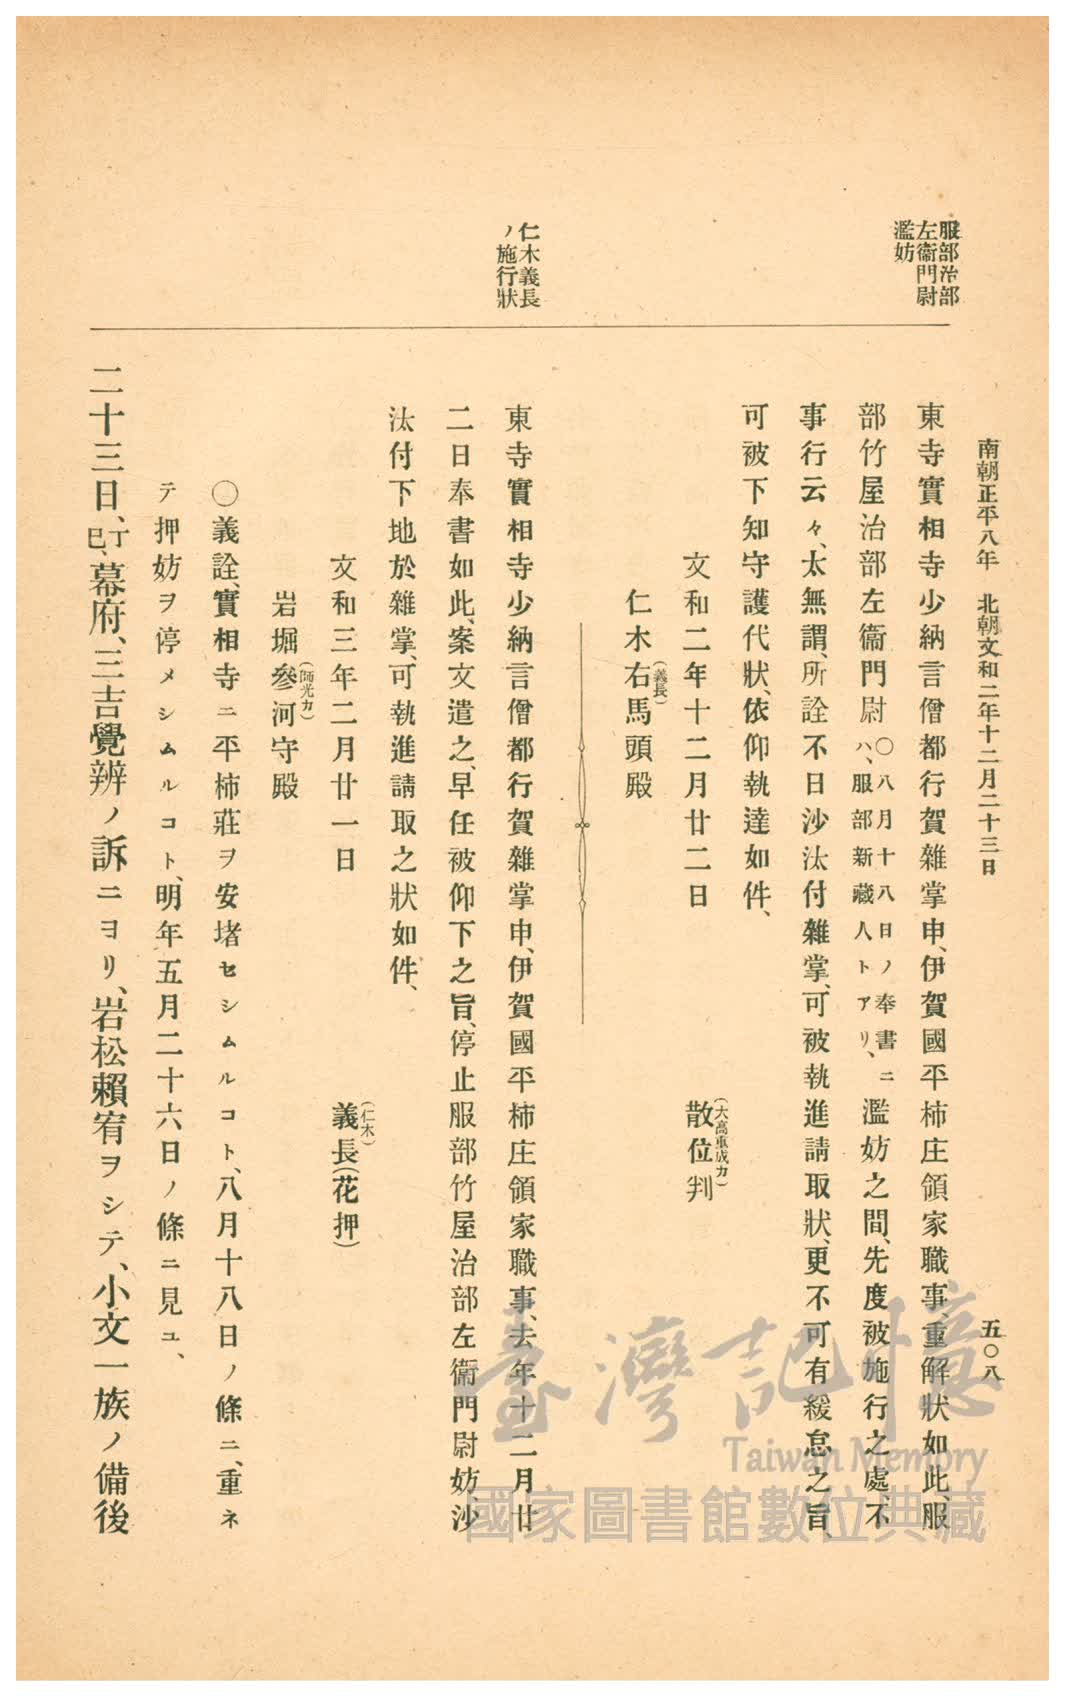 南朝正平八年　北朝文和二年十二月二十三日
五〇八
服部治部
左衞門尉
濫妨
仁木義長
ノ施行狀
東寺實相寺少納言僧都行賀雜掌申、伊賀國平柿庄領家職事、重解狀如此、服
部竹屋治部左衞門尉〇八月十八日ノ奉書ニハ、服部新藏人トアリ、濫妨之間、先度被施行之處、不
事行云々、太無謂、所詮不日沙汰付雜掌、可被執進請取狀、更不可有緩怠之旨、
可被下知守護代狀、依仰執達如件、
文和二年十二月廿二日　散位判(大高重成カ)
仁木右馬頭殿(義長)
東寺實相寺少納言僧都行賀雜掌申、伊賀國平柿庄領家職事、去年十二月廿
二日奉書如此、案文遣之、早任被仰下之旨、停止服部竹屋治部左衞門尉妨、沙
汰付下地於雜掌、可執進請取之狀如件、
文和三年二月廿一日　義長(花押)(仁木)
岩堀參河守殿(師光カ)
〇義詮、實相寺ニ平柿莊ヲ安堵セシムルコト、八月十八日ノ條ニ、重ネ
テ押妨ヲ停メシムルコト、明年五月二十六日ノ條ニ見ユ、
二十三日、丁巳、幕府、三吉覺辨ノ訴ニヨリ、岩松賴宥ヲシテ、小文一族ノ備後
臺灣記憶
Taiwan Memory
國家圖書館數位典藏